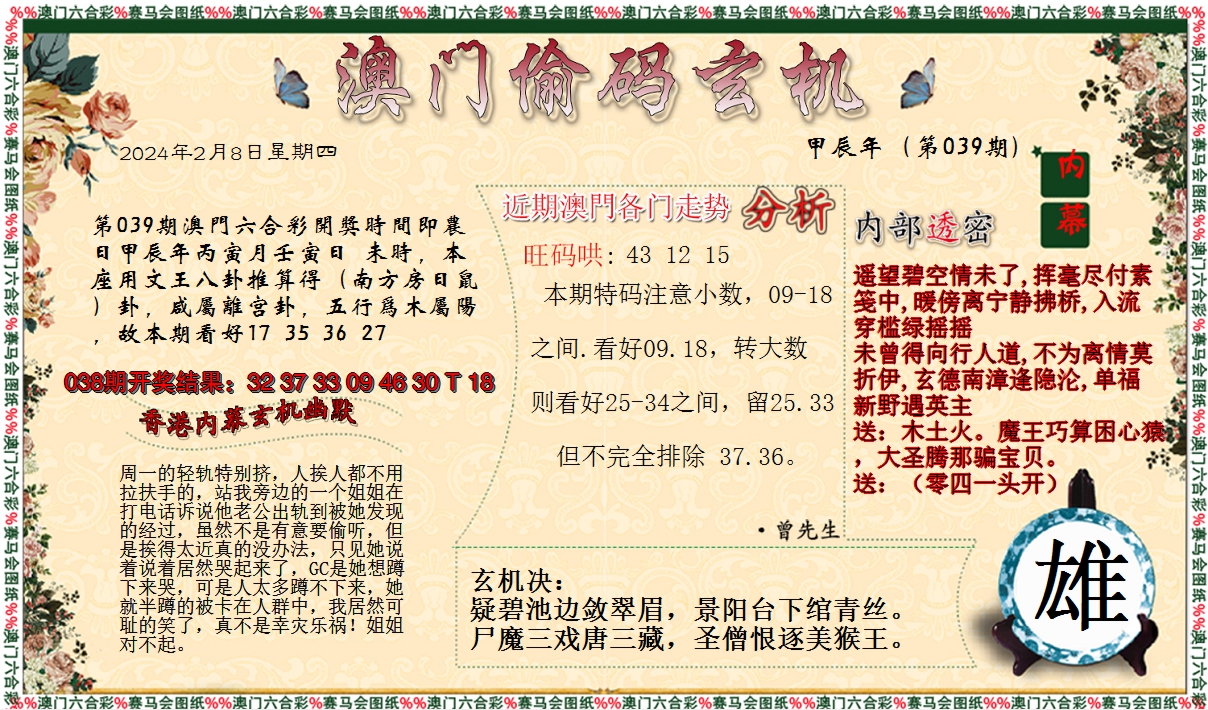 %%澳门六合彩%赛马会图纸%%澳门六合彩%赛马会图纸%%澳门六合彩%赛马会图纸%%澳门六合彩%赛马会图纸%%澳门六合彩%赛马会图纸%%澳门六合彩%赛马会图纸%%
澳门偷码玄机
2024年2月8日星期四
甲辰年（第039期）
内幕
第039期澳門六合彩開獎時間即農
日甲辰年丙寅月壬寅日 未時，本
座用文王八卦推算得（南方房日鼠
）卦，咸屬離宫卦，五行爲木屬陽
，故本期看好17 35 36 27
038期开奖结果：32 37 33 09 46 30 T 18
香港内幕玄机幽默
周一的轻轨特别挤，人挨人都不用
拉扶手的，站我旁边的一个姐姐在
打电话诉说他老公出轨到被她发现
的经过，虽然不是有意要偷听，但
是挨得太近真的没办法，只见她说
着说着居然哭起来了，GC是她想蹲
下来哭，可是人太多蹲不下来，她
就半蹲的被卡在人群中，我居然可
耻的笑了，真不是幸灾乐祸！姐姐
对不起。
近期澳門各门走势 分析
旺码哄: 43 12 15
本期特码注意小数，09-18
之间.看好09.18，转大数
则看好25-34之间，留25.33
但不完全排除 37.36。
·曾先生
内部透密
遥望碧空情未了,挥毫尽付素
笺中,暖傍离宁静拂桥,入流
穿槛绿摇摇
未曾得向行人道,不为离情莫
折伊,玄德南漳逢隐沦,单福
新野遇英主
送：木土火。魔王巧算困心猿
，大圣腾那骗宝贝。
送：（零四一头开）
玄机决：
疑碧池边敛翠眉，景阳台下绾青丝。
尸魔三戏唐三藏，圣僧恨逐美猴王。
雄
%%澳门六合彩%赛马会图纸%%澳门六合彩%赛马会图纸%%澳门六合彩%赛马会图纸%%澳门六合彩%赛马会图纸%%澳门六合彩%赛马会图纸%%澳门六合彩%赛马会图纸%%